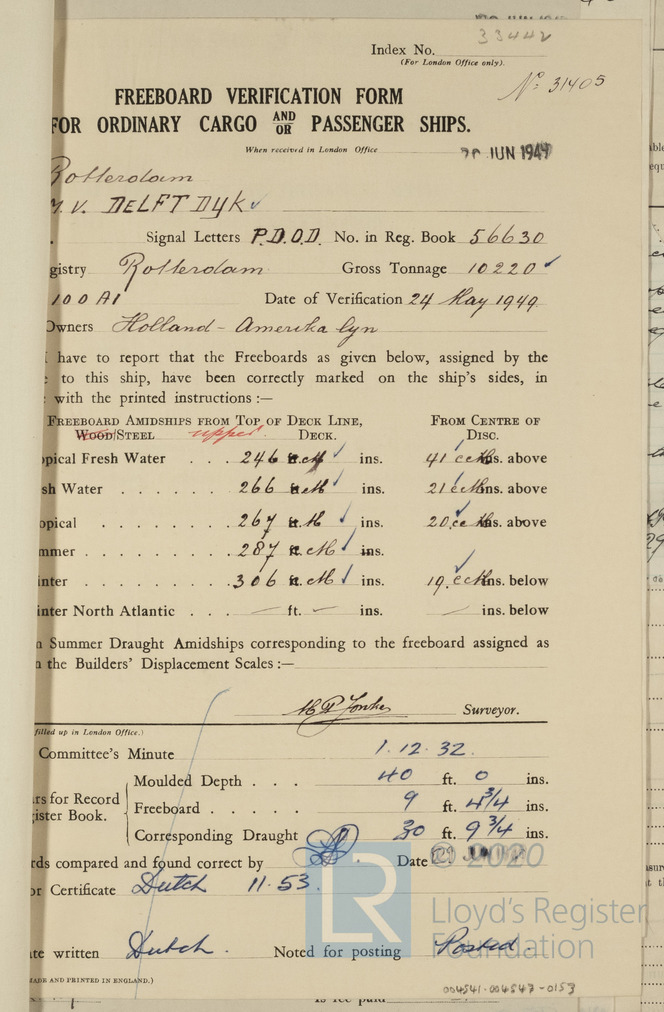 33442
Index No.
(For London Office only).
No: 31405
FREEBOARD VERIFICATION FORM
FOR ORDINARY CARGO AND/OR PASSENGER SHIPS.
When received in London Office
JUN 1949
Rotterdam
M.V. DELFTDYK
Signal Letters P.D.O.D. No. in Reg. Book 56630
gistry Rotterdam Gross Tonnage 10220
100 A1 Date of Verification 24 May 1949
Owners Holland-Amerika Lyn
have to report that the Freeboards as given below, assigned by the
to this ship, have been correctly marked on the ship's sides, in
with the printed instructions :—
FREEBOARD AMIDSHIPS FROM TOP OF DECK LINE, FROM CENTRE OF
WOOD/STEEL upper DECK. DISC.
opical Fresh Water . . . 246 ft. cM ins. 41 ins. above
sh Water . . . . . . 266 ft. cM ins. 21 ins. above
opical . . . . . . . 267 ft. cM ins. 20 ins. above
mmer . . . . . . . . 287 ft. cM ins.
inter . . . . . . . . 306 ft. cM ins. 19 ins. below
inter North Atlantic . . . — ft. — ins. — ins. below
n Summer Draught Amidships corresponding to the freeboard assigned as
n the Builders' Displacement Scales :—
Surveyor.
filled up in London Office.)
Committee's Minute 1.12.32.
Moulded Depth . . . 40 ft. 0 ins.
rs for Record
Freeboard . . . . . 9 ft. 4 3/4 ins.
ister Book.
Corresponding Draught 30 ft. 9 3/4 ins.
rds compared and found correct by Date
© 2020
or Certificate Dutch 11.53.
LR
Lloyd's Register
Foundation
te written Dutch. Noted for posting Posted.
MADE AND PRINTED IN ENGLAND.)
004541-004547-0153
is fee paid